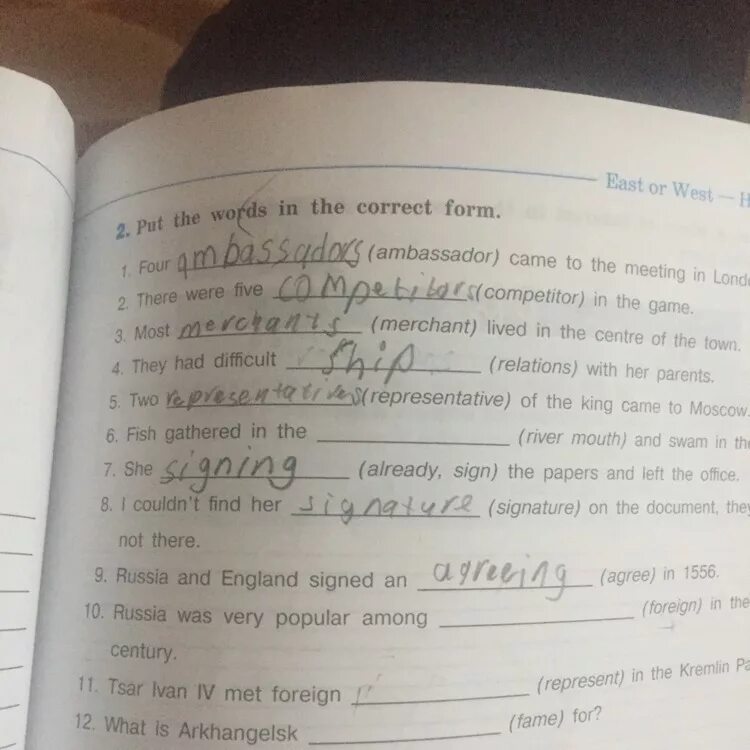 East or West — H
2. Put the words in the correct form.
1. Four ambassadors (ambassador) came to the meeting in Londo
2. There were five competitors (competitor) in the game.
3. Most merchants (merchant) lived in the centre of the town.
4. They had difficult ship (relations) with her parents.
5. Two (representative) of the king came to Moscow.
6. Fish gathered in the ____________ (river mouth) and swam in the
7. She signing (already, sign) the papers and left the office.
8. I couldn't find her signature (signature) on the document, they
not there.
9. Russia and England signed an agreeing (agree) in 1556.
10. Russia was very popular among ____________ (foreign) in the
century.
11. Tsar Ivan IV met foreign ____________ (represent) in the Kremlin Pa
12. What is Arkhangelsk ____________ (fame) for?